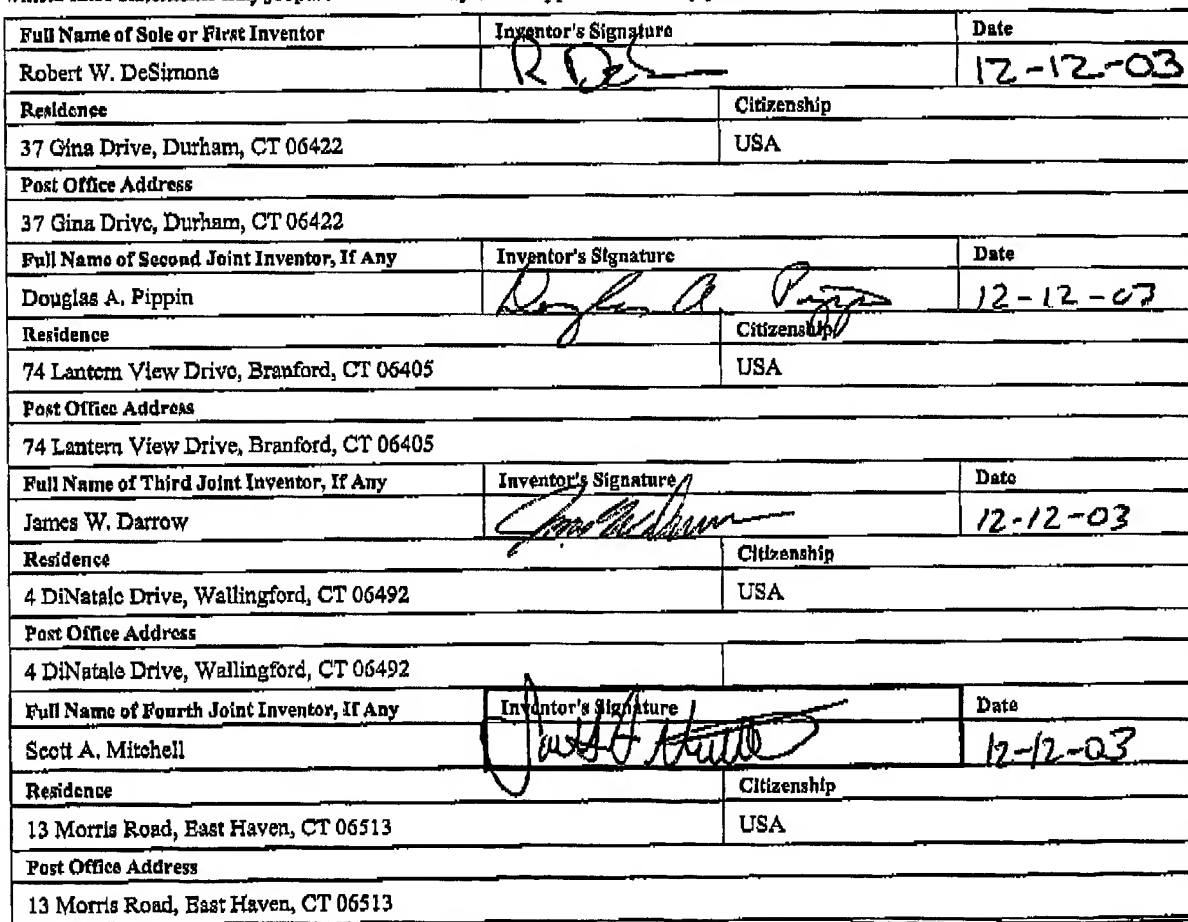 Full Name of Sole or First Inventor Inventor's Signature Date
Robert W. DeSimone R DeS 12-12-03
Residence Citizenship
37 Gina Drive, Durham, CT 06422 USA
Post Office Address
37 Gina Drive, Durham, CT 06422
Full Name of Second Joint Inventor, If Any Inventor's Signature Date
Douglas A. Pippin Douglas A. Pippin 12-12-03
Residence Citizenship
74 Lantern View Drive, Branford, CT 06405 USA
Post Office Address
74 Lantern View Drive, Branford, CT 06405
Full Name of Third Joint Inventor, If Any Inventor's Signature Date
James W. Darrow 12-12-03
Residence Citizenship
4 DiNatale Drive, Wallingford, CT 06492 USA
Post Office Address
4 DiNatale Drive, Wallingford, CT 06492
Full Name of Fourth Joint Inventor, If Any Inventor's Signature Date
Scott A. Mitchell 12-12-03
Residence Citizenship
13 Morris Road, East Haven, CT 06513 USA
Post Office Address
13 Morris Road, East Haven, CT 06513